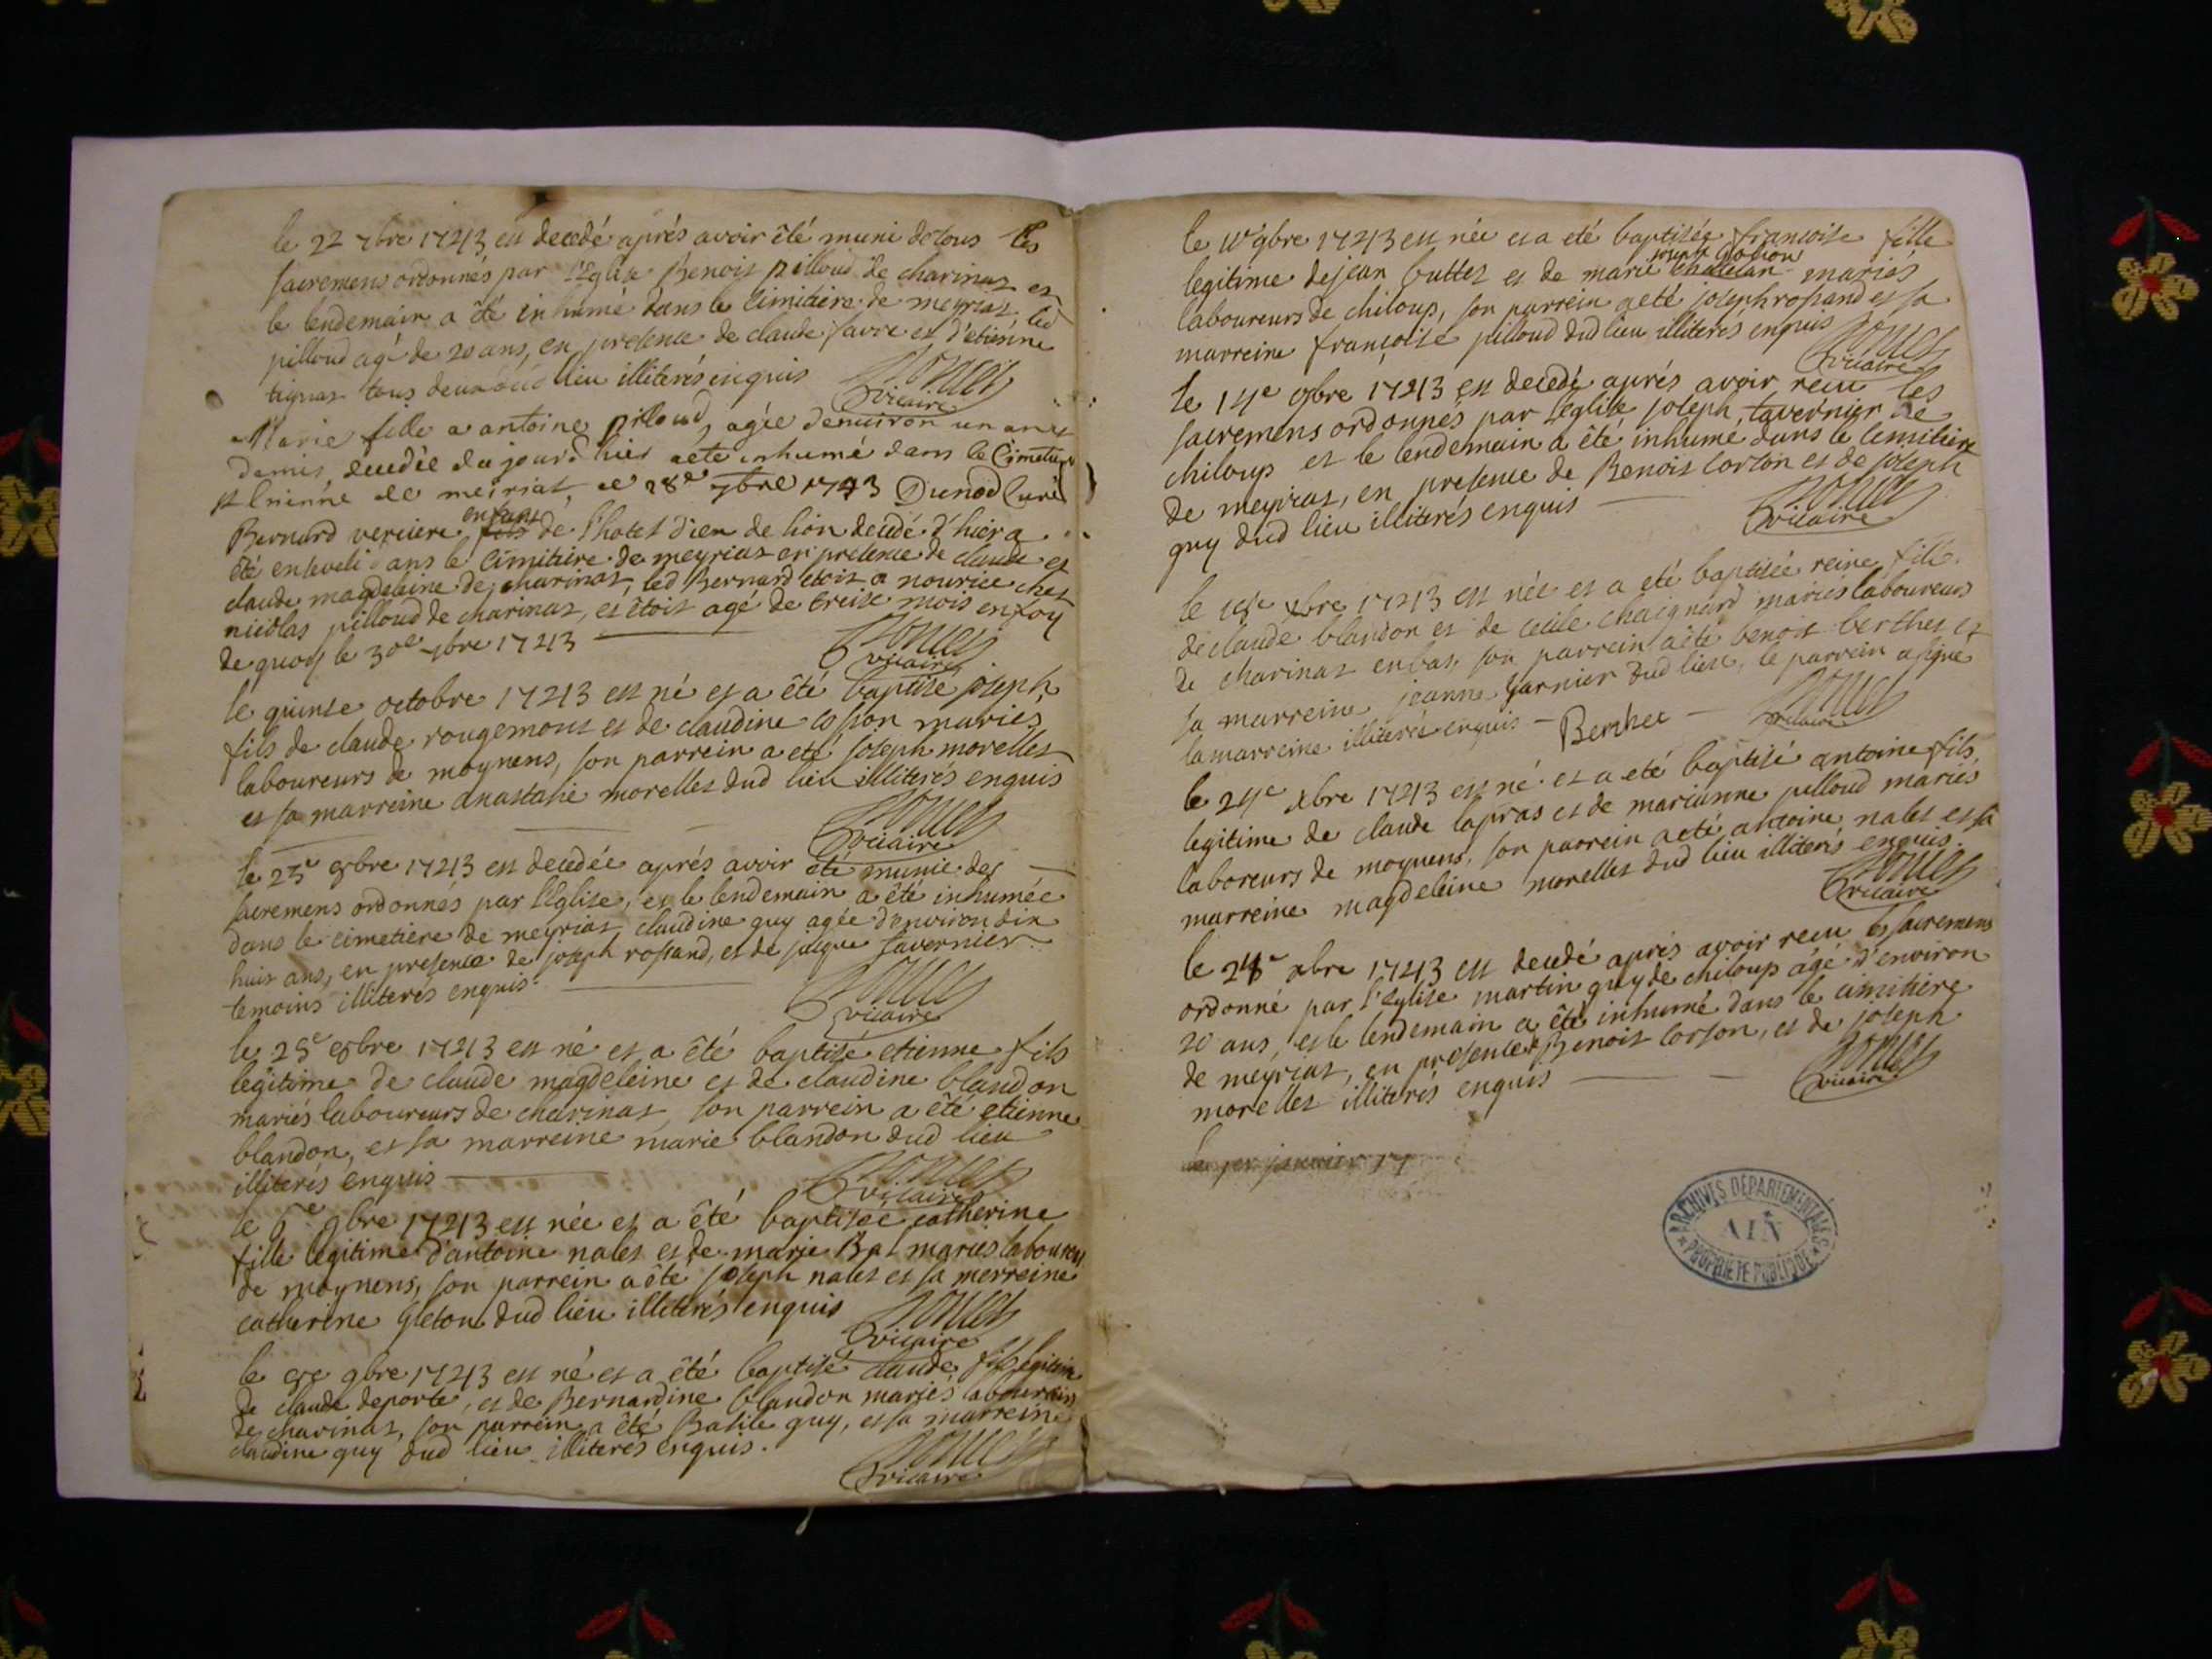 le 22 7bre 1743 est decedé aprés avoir êté muni de tous les
sacremens ordonnés par l'Eglise Benoit pilloud de charinas et
le lendemain a êté inhumé dans le cimitiere de meyrias led
pilloud agé de 20 ans, en presence de claude favre et d'etienne
tignat tous deux dud lieu illiterés enquis
vicaire
Marie fille a antoine pilloud, agée denviron un an et
demis, decedée du jourd hier a ete inhumé dans le Cimetiere
de meiriat, ce 28e 7bre 1743 Dunod Curé
Bernard verciere enfant fils de l'hotel dieu de lion decedé d'hier a
êté enseveli dans le cimitiere de meyrias en presence de claude et
claude magdeleine de charinas, led Bernard etoit a nourice chez
nicolas pilloud de charinas, et êtoit agé de treise mois en foy
de quoy le 30e 7bre 1743
vicaire
le quinse octobre 1743 est né et a êté baptisé joseph
fils de claude rougemont et de claudine cosson mariés
laboureurs de moynens, son parrein a eté joseph morelles
et sa marreine anastasie morelles dud lieu illiterés enquis
vicaire
le 23e 8bre 1743 est decedée aprés avoir été munie des
sacremens ordonnés par l'Eglise, et le lendemain a êté inhumée
dans le cimetiere de meyrias claudine guy agée d'environ dix
huit ans, en presence de joseph rossand, et de jaque tavernier
temoins illiterés enquis.
vicaire
le 25e 8bre 1743 est né et a êté baptisé etienne fils
legitime de claude magdeleine et de claudine blandon
mariés laboureurs de charinas, son parrein a êté etienne
blandon, et sa marreine marie blandon dud lieu
illiterés enquis
vicaire
le 9bre 1743 est née et a êté baptisée catherine
fille legitime d'antoine nalet et de marie Bal mariés laboureurs
de moynens, son parrein a êté joseph nalet et sa merreine
catherine gleton dud lieu illiterés enquis
vicaire
le 9bre 1743 est né et a êté baptisé claude fils legitime
de claude deporte, et de Bernardine blandon mariés laboureurs
de charinas, son parrein a êté Basile guy, et sa marreine
claudine guy dud lieu illiterés enquis.
vicaire
le 10e 9bre 1743 est née et a eté baptisée francoise fille
legitime de jean buttet et de marie chatelan mariés
laboureurs de chiloup, son parrein a eté joseph rossand et sa
marreine françoise pilloud dud lieu illiterés enquis
vicaire
le 14e 9bre 1743 est decedé aprés avoir recu les
sacremens ordonnés par l'eglise joseph tavernier de
chiloup et le lendemain a êté inhumé dans le cemitiere
de meyrias, en presence de Benoit corton et de joseph
guy dud lieu illiterés enquis
vicaire
le xbre 1743 est née et a eté baptisée reine fille
de claude blandon et de cecile chaignard mariés laboureurs
de charinas en bas, son parrein a êté benoit berthet et
sa marreine jeanne garnier dud lieu, le parrein a signé
la marreine illiterée enquis - Berthet -
vicaire
le 24e xbre 1743 est né et a eté baptisé antoine fils
legitime de claude lapras et de marianne pilloud mariés
laboreurs de moynens, son parrein a eté antoine nalet et sa
marreine magdeleine morelles dud lieu illiterés enquis.
vicaire
le 28e xbre 1743 est decedé aprés avoir recu les sacremens
ordonné par l'Eglise martin guy de chiloup agé d'environ
20 ans, et le lendemain a êté inhumé dans le cimitiere
de meyrias, en presence de Benoit corton, et de joseph
morelles illiterés enquis
vicaire
le 1er janvier 17
ARCHIVES DÉPARTEMENTALES
AIN
PROPRIÉTÉ PUBLIQUE